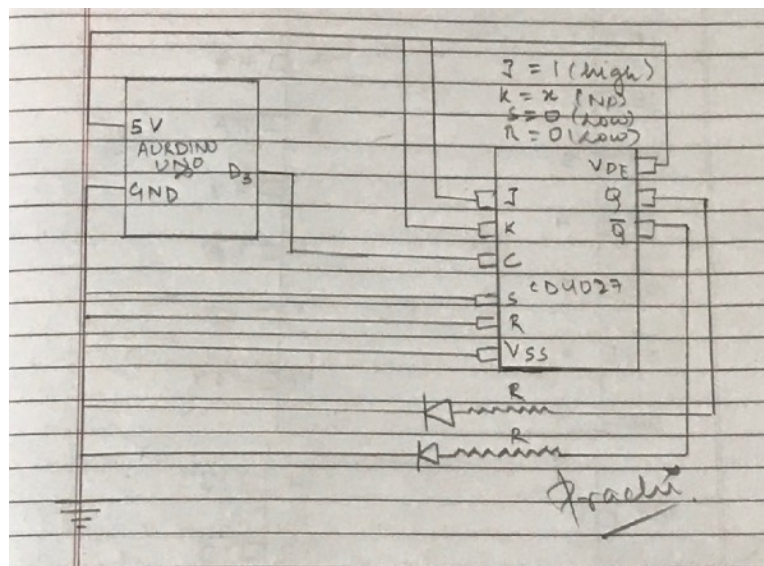 J = 1 (high)
K = x (No)
S = 0 (Low)
R = 0 (Low)
5V
AURDINO
UNO
D3
GND
VDE
J
Q
K
Q̅
C
CD4027
S
R
VSS
R
R
Prachi